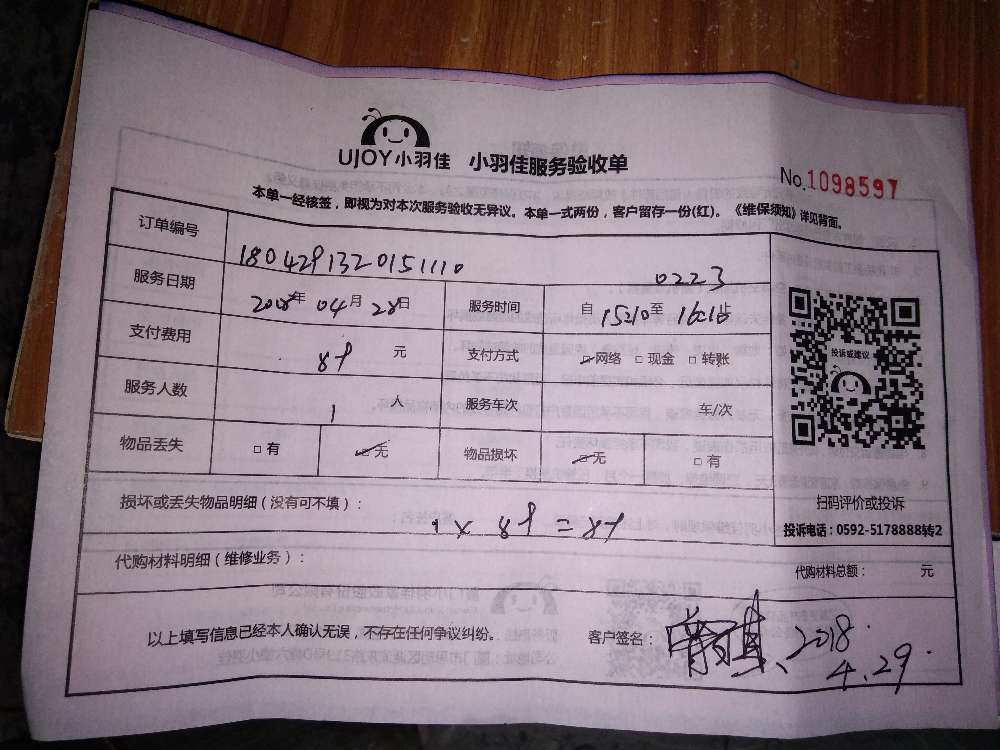 UJOY小羽佳 小羽佳服务验收单
No.1098597
本单一经核签，即视为对本次服务验收无异议。本单一式两份，客户留存一份(红)。《维保须知》详见背面。
订单编号 1804291320151110 0223
服务日期 2018年 04月 28日 服务时间 自 至
支付费用 89 元 支付方式 网络 □ 现金 □ 转账
服务人数 1 人 服务车次 车/次
物品丢失 □ 有 无 物品损坏 无 □ 有
投诉或建议
扫码评价或投诉
投诉电话：0592-5178888转2
损坏或丢失物品明细（没有可不填）：
1 x 89 = 89
代购材料明细（维修业务）：
代购材料总额： 元
以上填写信息已经本人确认无误，不存在任何争议纠纷。 客户签名： 2018.
4.29.